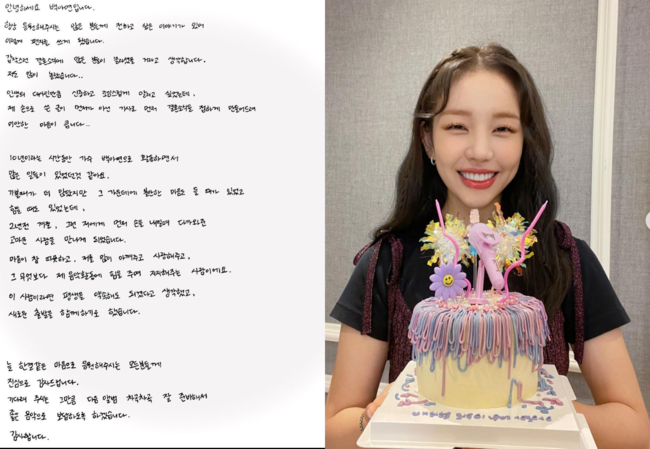 안녕하세요 백아연입니다.
항상 응원해주시는 많은 분들께 전하고 싶은 이야기가 있어
이렇게 편지를 쓰게 됐습니다.
갑작스런 결혼소식에 많은 분들이 놀라셨을 거라고 생각합니다,
저도 많이 놀랐습니다..
인생의 대사인만큼 신중하고 조심스럽게 알리고 싶었는데,
제 손으로 쓴 글이 먼저가 아닌 기사로 먼저 결혼소식을 접하게 만들어드려
미안한 마음이 큽니다...
10년이라는 시간동안 가수 백아연으로 활동하면서
많은 일들이 있었던것 같아요.
기쁠때가 더 많았지만 그 가운데에 불안한 마음으로 둘 때가 있었고
힘들 때도 있었는데,
2년전 겨울, 그런 저에게 먼저 손을 내밀며 다가와준
고마운 사람을 만나게 되었습니다.
마음이 참 따뜻하고, 저를 많이 아껴주고 사랑해주고,
그 무엇보다 제 음악활동에 힘을 주며 지지해주는 사람이에요.
이 사람이라면 평생을 약속해도 되겠다고 생각했고,
새로운 출발을 함께하기로 했습니다.
늘 한결같은 마음으로 응원해주시는 모든분들께
진심으로 감사드립니다.
기다려 주신 그만큼 다음 앨범 차곡차곡 잘 준비해서
좋은 음악으로 보답하도록 하겠습니다.
감사합니다.